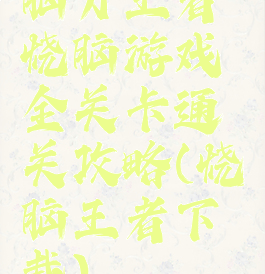 脑力王者
烧脑游戏
全关卡通
关攻略(烧
脑王者下
载)